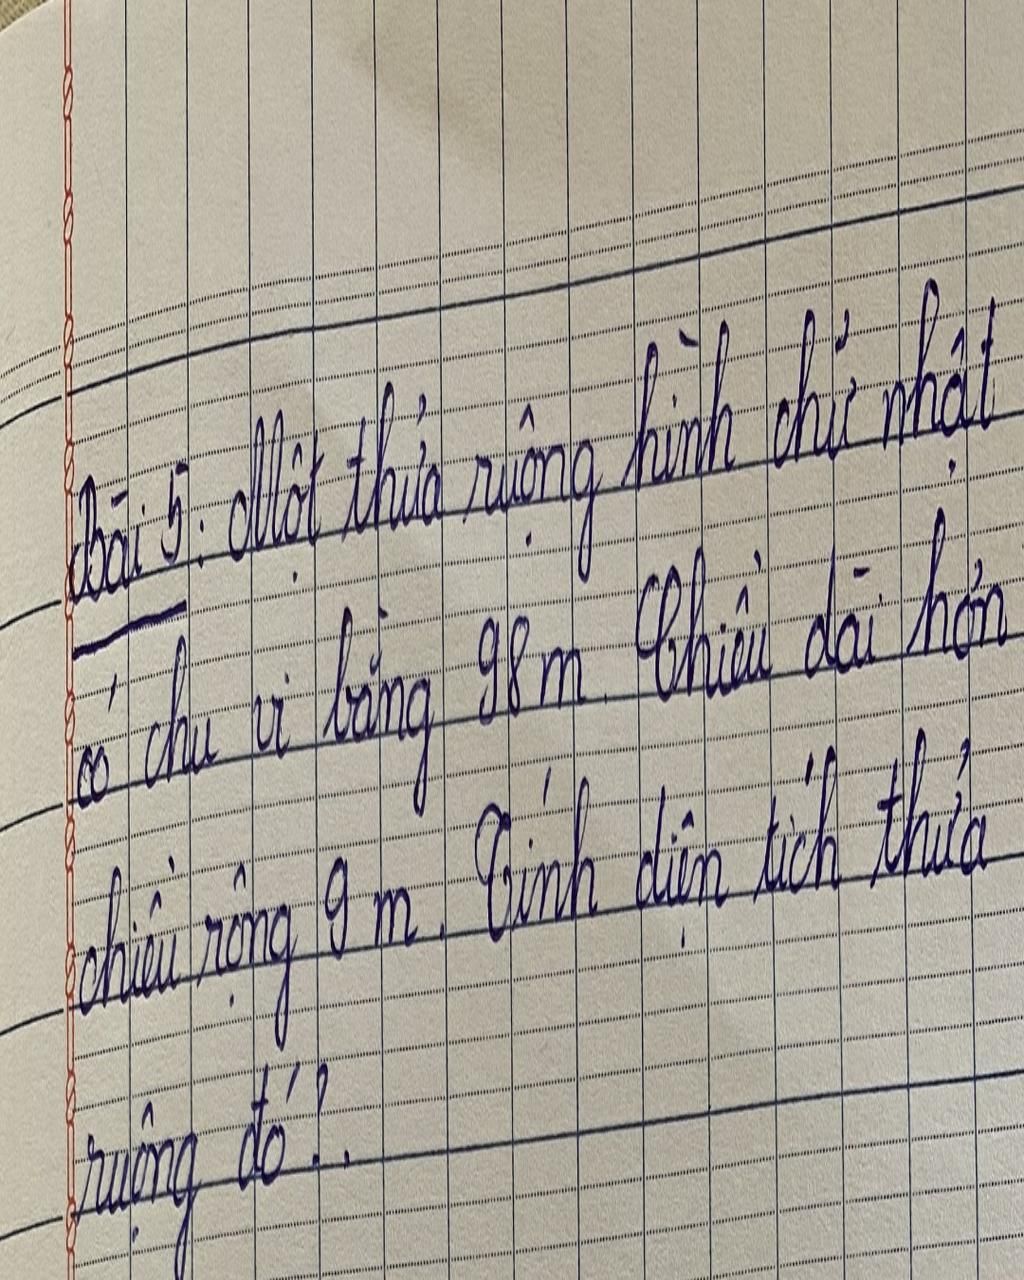 Bài 5: Một thửa ruộng hình chữ nhật
có chu vi bằng 98 m. Chiều dài hơn
chiều rộng 9 m. Tính diện tích thửa
ruộng đó?.